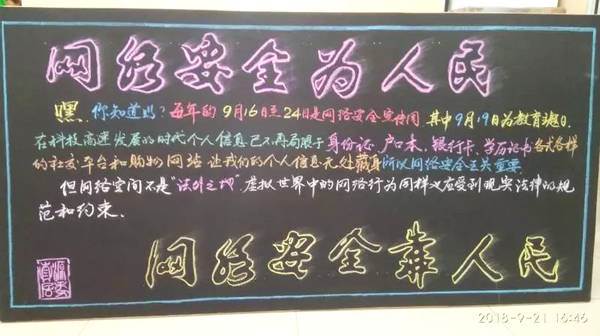 网络安全为人民
嘿 你知道吗？每年的9月16日至24日是网络安全宣传周 其中9月19日为教育主题日
在科技高速发展的时代个人信息已不再局限于身份证、户口本、银行卡、学历证书各式各样
的社交平台和购物网络 让我们的个人信息无处藏身所以网络安全至关重要
但网络空间不是"法外之地"，虚拟世界中的网络行为同样义应受到现实法律的规
范和约束。
网络安全靠人民
2018-9-21 16:46